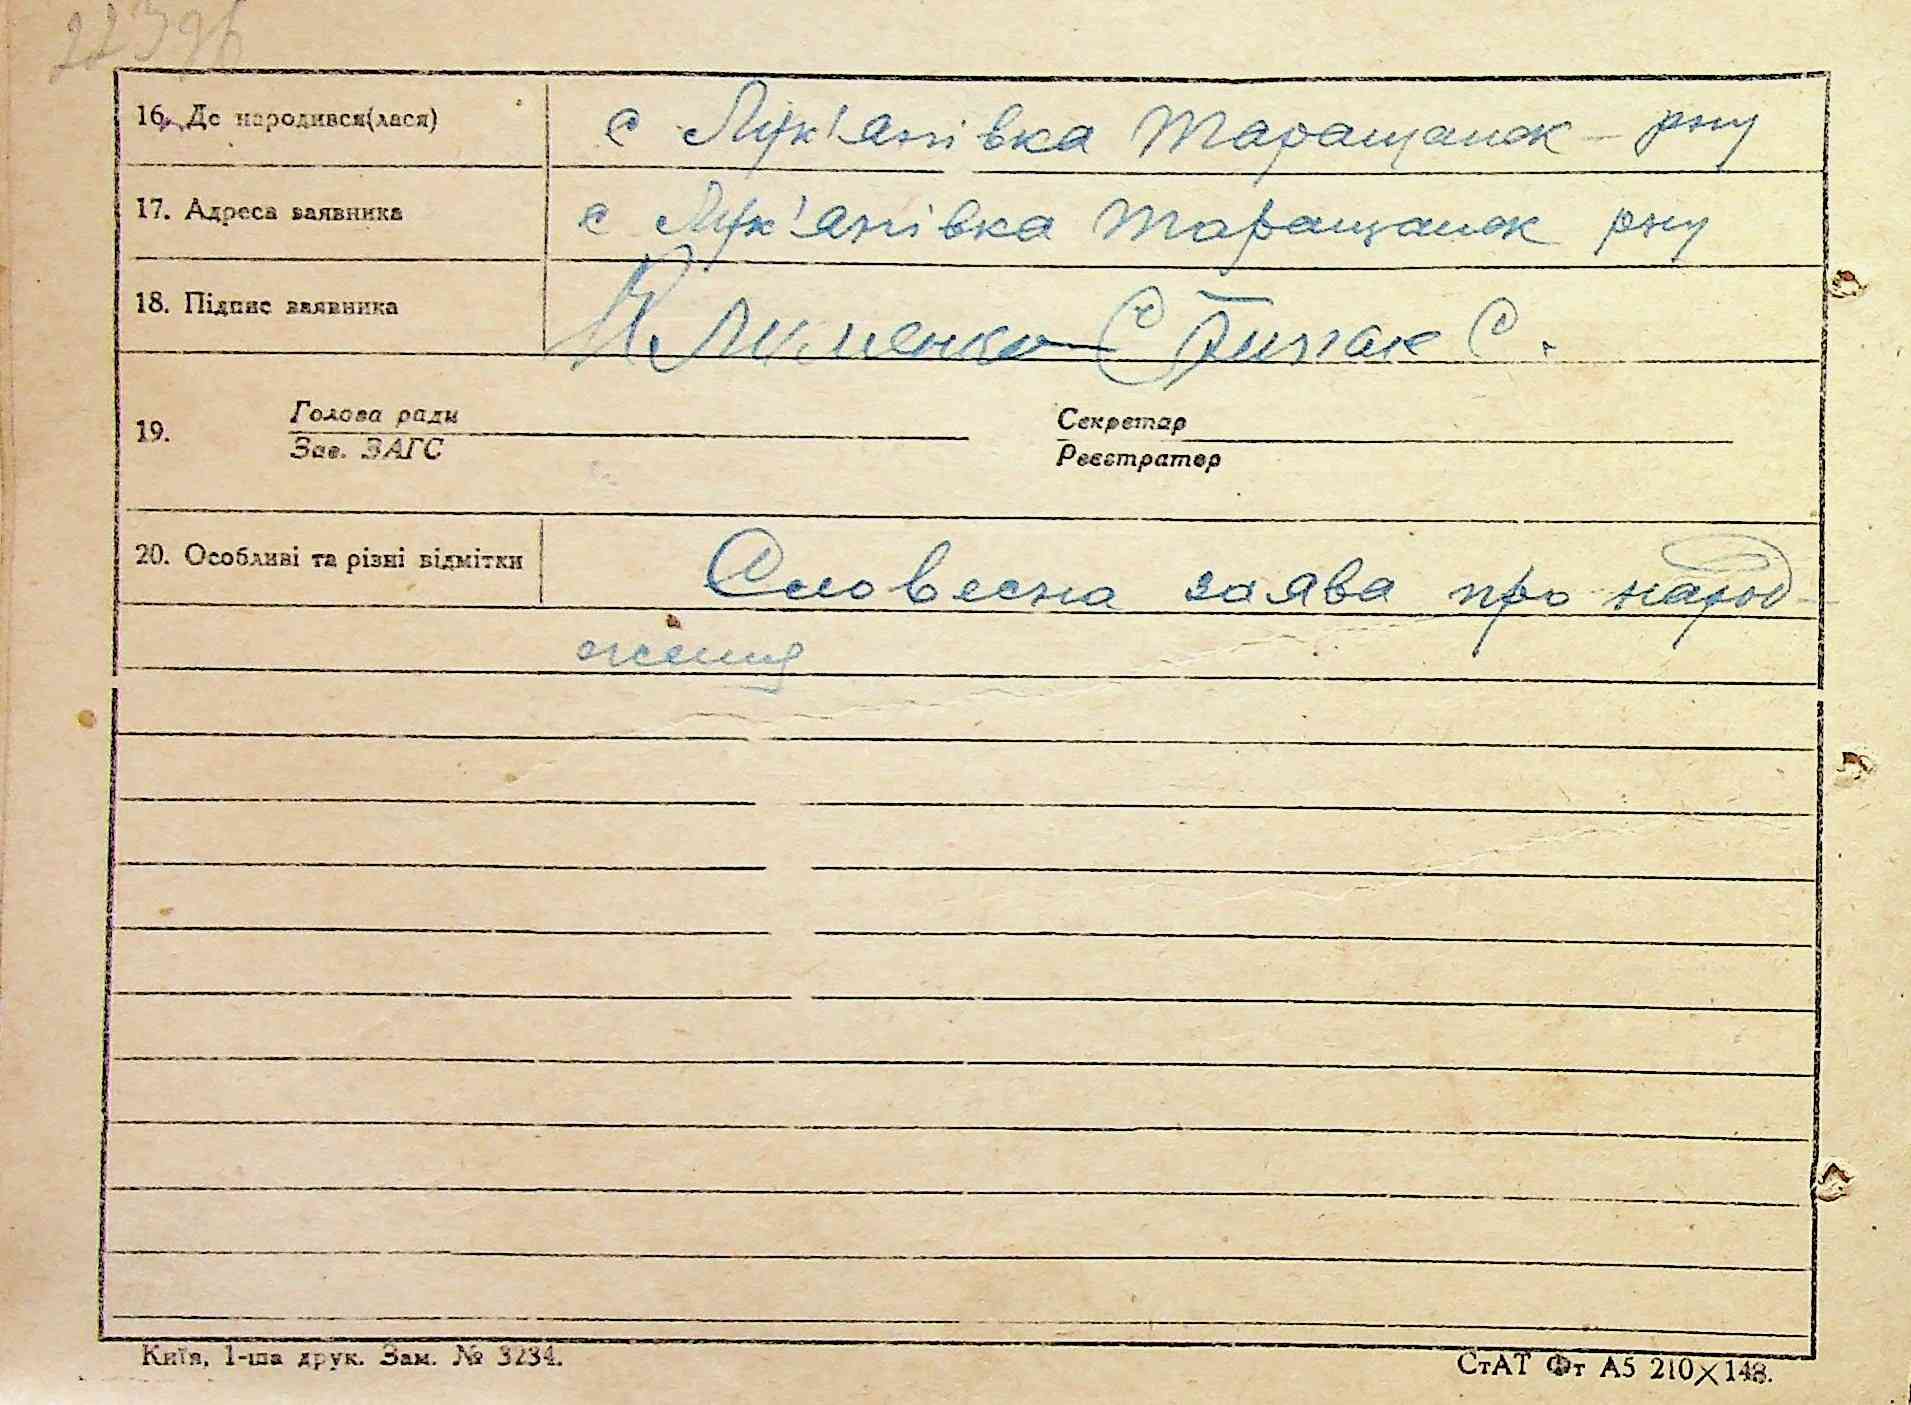 16. Де народився(лася) с Лук'янівка Таращанск - рну
17. Адреса заявника с Лук'янівка Таращанск рну
18. Підпис заявника Клименко С
19. Голова ради Секретар
Зав. ЗАГС Реєстратор
20. Особливі та різні відмітки Словесна заява про народ-
ження
Київ, 1-ша друк. Зам. № 3234. СтАТ Фт А5 210×148.